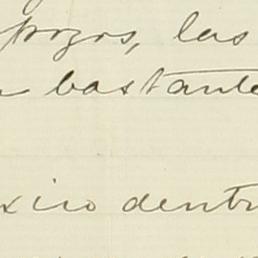 pozos, las
bastante
xico dentr